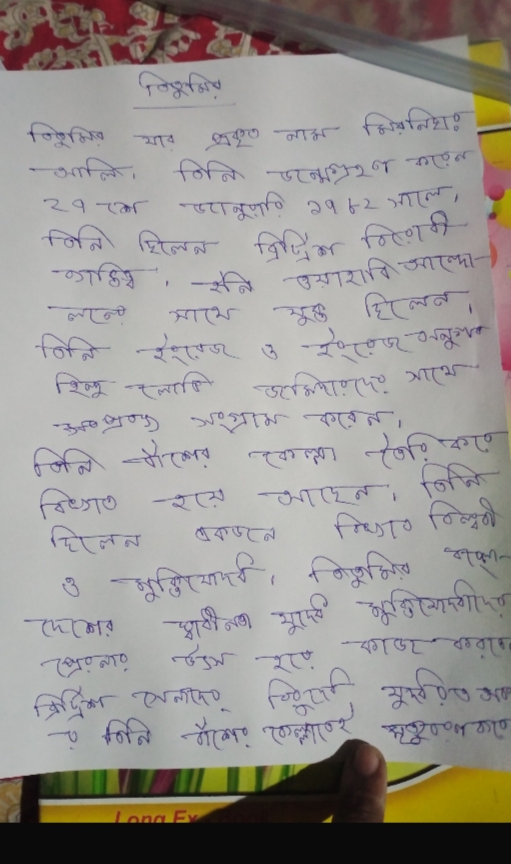 তিতুমির
তিতুমির যার প্রকৃত নাম মিরনিসার
আলি। তিনি জন্মগ্রহণ করেন
২৭ শে জানুয়ারি ১৭৮২ সালে।
তিনি ছিলেন ব্রিটিশ বিরোধী
ব্যক্তিত্ব। ইনি ওয়াহাবি আন্দো-
লনের সাথে যুক্ত ছিলেন।
তিনি ইংরেজ ও ইংরেজ অনুগত
হিন্দু জমিদারদের সাথে
সংগ্রাম করেন।
তিনি বাঁশের কেল্লা তৈরি করে
বিখ্যাত হয়ে আছেন। তিনি
ছিলেন একজন বিখ্যাত বিপ্লবী
ও মুক্তিযোদ্ধা। তিতুমির বাংলা-
দেশের স্বাধীনতা যুদ্ধে মুক্তিযোদ্ধাদের
প্রেরনার উৎস হয়ে কাজ করেছে
ব্রিটিশ সেনাদের বিরুদ্ধে যুদ্ধরত
তিনি বাঁশের কেল্লাতেই মৃত্যুবরণ করে
Long Ex